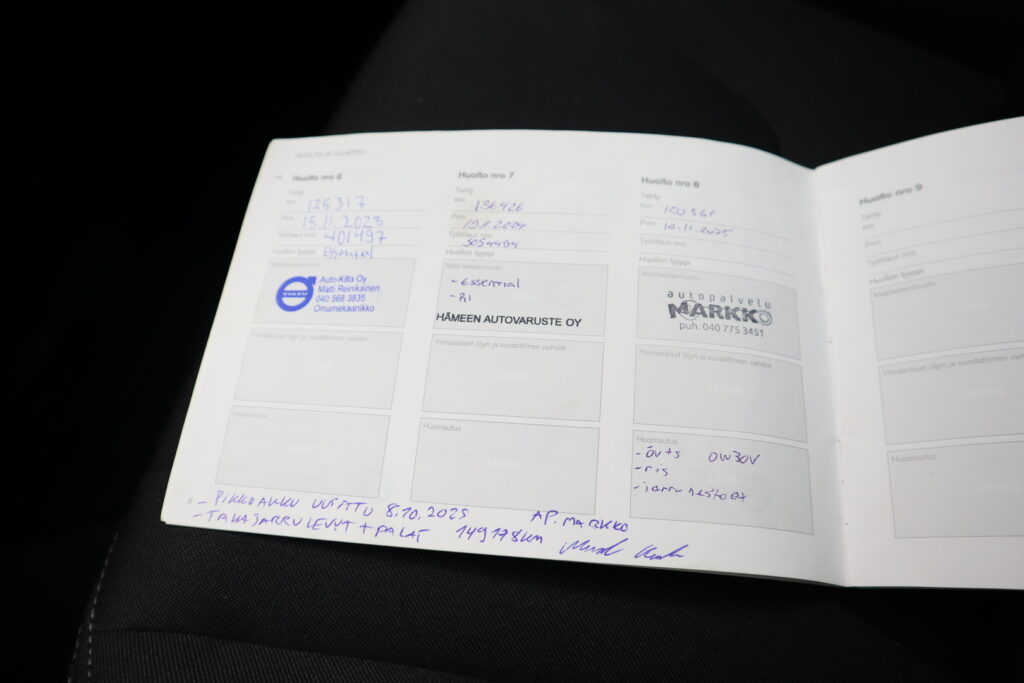 Huolto nro 6
Tehty
Km 125317
Pvm 15.11.2023
Työtilaus nro 401497
Huollon tyyppi Essential
Määräaikaishuolto
VOLVO
Auto-Kilta Oy
Matti Reinikainen
040 568 3835
Omamekaanikko
Ylimääräiset öljyn ja suodattimen vaihdot
LEIMA
Huomautus
Huolto nro 7
Tehty
Km 136426
Pvm 19.11.2024
Työtilaus nro
Huollon tyyppi
Määräaikaishuolto
- Essential
- RI
HÄMEEN AUTOVARUSTE OY
Ylimääräiset öljyn ja suodattimen vaihdot
LEIMA
Huomautus
LEIMA
Huolto nro 8
Tehty
Km 150561
Pvm 10.11.2025
Työtilaus nro
Huollon tyyppi
Määräaikaishuolto
autopalvelu
MARKKO
puh. 040 775 3451
Ylimääräiset öljyn ja suodattimen vaihdot
LEIMA
Huomautus
- öv+s 0W30V
- ris
- jarrunesteet
LEIMA
Huolto nro 9
Tehty
Km
Pvm
Työtilaus nro
Huollon tyyppi
Määräaikaishuolto
Ylimääräiset öljyn ja suodattimen vaihdot
Huomautus
- PIKKUAKKU UUSITTU 8.10.2025 AP. MARKKO
- TAKAJARRULEVYT + PALAT 149178km